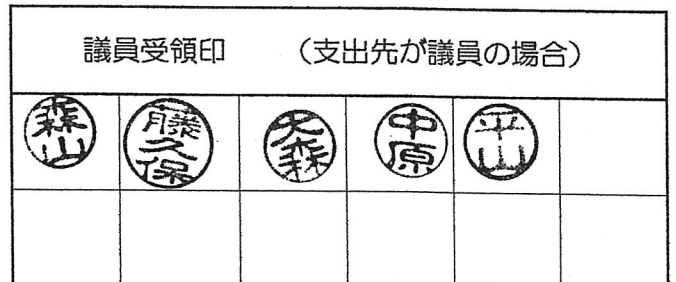 議員受領印　（支出先が議員の場合）
森山 藤久保 大森 中原 平山